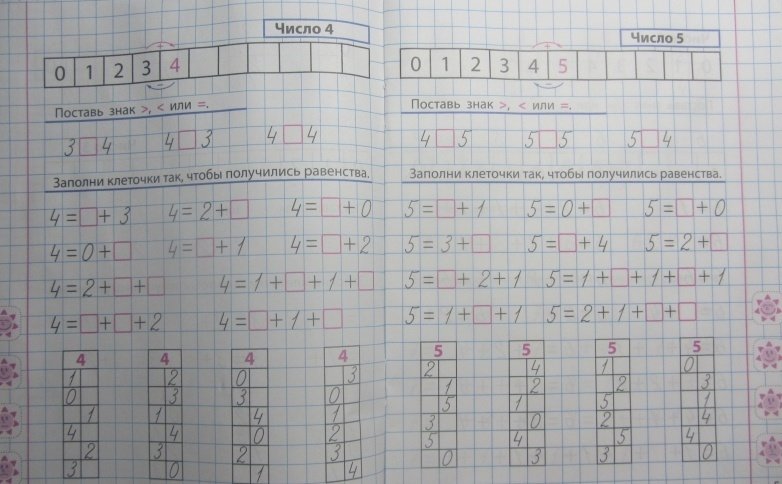 Число 4
0 1 2 3 4
Поставь знак >, < или =.
3 □ 4 4 □ 3 4 □ 4
Заполни клеточки так, чтобы получились равенства.
4 = □ + 3 4 = 2 + □ 4 = □ + 0
4 = 0 + □ 4 = □ + 1 4 = □ + 2
4 = 2 + □ + □ 4 = 1 + □ + 1 + □
4 = □ + □ + 2 4 = □ + 1 + □
4 4 4 4
1 2 0 3
0 3 3 0
1 1 4 1
4 4 0 2
2 3 2 3
3 0 1 4
Число 5
0 1 2 3 4 5
Поставь знак >, < или =.
4 □ 5 5 □ 5 5 □ 4
Заполни клеточки так, чтобы получились равенства.
5 = □ + 1 5 = 0 + □ 5 = □ + 0
5 = 3 + □ 5 = □ + 4 5 = 2 + □
5 = □ + 2 + 1 5 = 1 + □ + 1 + □ + 1
5 = 1 + □ + 1 5 = 2 + 1 + □ + □
5 5 5 5
2 4 1 0
1 2 2 3
5 1 5 1
3 0 2 4
5 4 5 4
0 3 3 0